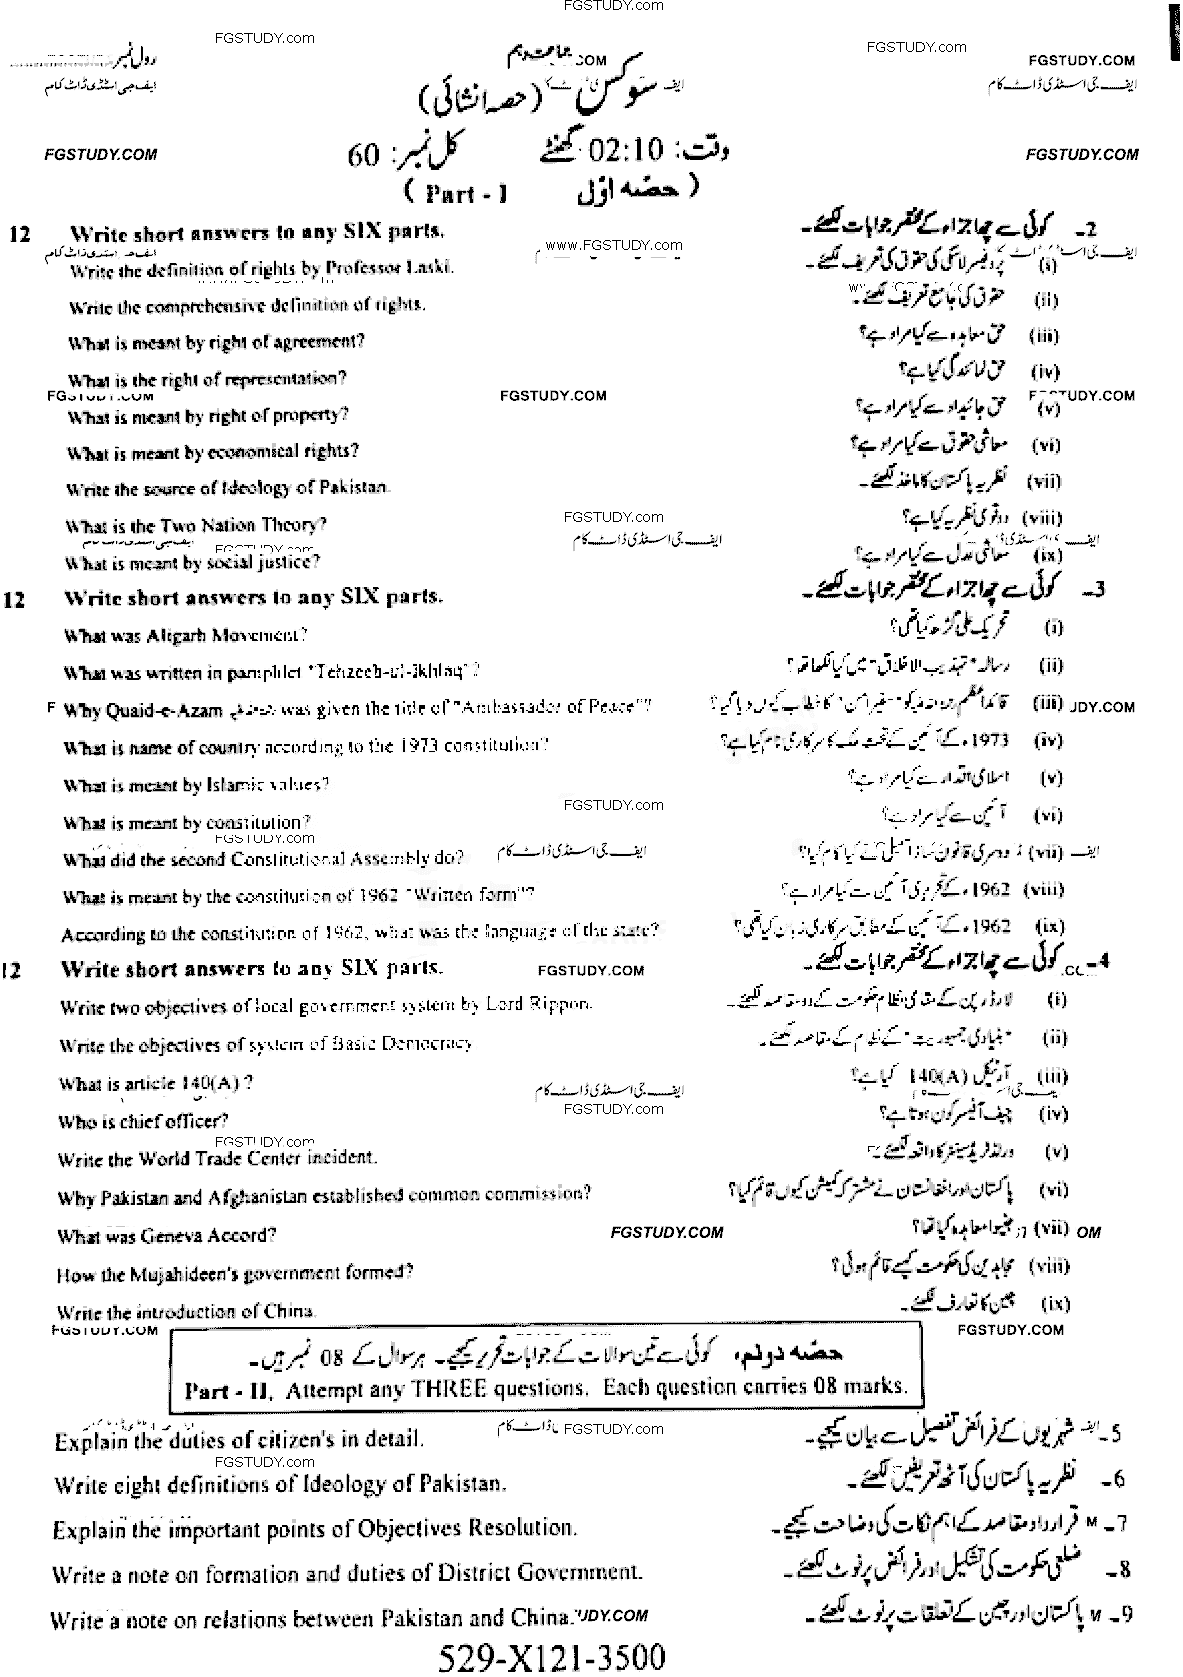 FGSTUDY.com
FGSTUDY.com FGSTUDY.com
رول نمبر جماعت دہم .COM FGSTUDY.COM
ایف جی اسٹڈی ڈاٹ کام سوکس (حصہ انشائی) ایف جی اسٹڈی ڈاٹ کام
FGSTUDY.COM وقت: 02:10 گھنٹے کل نمبر: 60 FGSTUDY.COM
( حصّہ اوّل Part - I )
12 Write short answers to any SIX parts. 2۔ کوئی سے چھ اجزاء کے مختصر جوابات لکھئے۔
ایف جی اسٹڈی ڈاٹ کام www.FGSTUDY.com ایف جی اسٹڈی ڈاٹ کام
Write the definition of rights by Professor Laski. (i) پروفیسر لاسکی کی حقوق کی تعریف لکھئے۔
Write the comprehensive definition of rights. (ii) حقوق کی جامع تعریف لکھئے۔
What is meant by right of agreement? (iii) حق معاہدہ سے کیا مراد ہے؟
What is the right of representation? (iv) حق نمائندگی کیا ہے؟
FGSTUDY.COM FGSTUDY.COM FGSTUDY.COM
What is meant by right of property? (v) حق جائیداد سے کیا مراد ہے؟
What is meant by economical rights? (vi) معاشی حقوق سے کیا مراد ہے؟
Write the source of Ideology of Pakistan. (vii) نظریہ پاکستان کا ماخذ لکھئے۔
FGSTUDY.com
What is the Two Nation Theory? (viii) دو قومی نظریہ کیا ہے؟
ایف جی اسٹڈی ڈاٹ کام FGSTUDY.com ایف جی اسٹڈی ڈاٹ کام ایف جی اسٹڈی
What is meant by social justice? (ix) معاشی عدل سے کیا مراد ہے؟
12 Write short answers to any SIX parts. 3۔ کوئی سے چھ اجزاء کے مختصر جوابات لکھئے۔
What was Aligarh Movement? (i) تحریک علی گڑھ کیا تھی؟
What was written in pamphlet "Tehzeeb-ul-Ikhlaq"? (ii) رسالہ "تہذیب الاخلاق" میں کیا لکھا تھا؟
F Why Quaid-e-Azam was given the title of "Ambassador of Peace"? (iii) قائداعظم کو "سفیر امن" کا خطاب کیوں دیا گیا؟ JDY.COM
What is name of country according to the 1973 constitution? (iv) 1973ء کے آئین کے تحت ملک کا سرکاری نام کیا ہے؟
What is meant by Islamic values? (v) اسلامی اقدار سے کیا مراد ہے؟
FGSTUDY.com
What is meant by constitution? (vi) آئین سے کیا مراد ہے؟
FGSTUDY.com
What did the second Constitutional Assembly do? ایف جی اسٹڈی ڈاٹ کام (vii) دوسری قانون ساز اسمبلی نے کیا کام کیا؟ ایف
What is meant by the constitution of 1962 "Written form"? (viii) 1962ء کے تحریری آئین سے کیا مراد ہے؟
According to the constitution of 1962, what was the language of the state? (ix) 1962ء کے آئین کے مطابق سرکاری زبان کیا تھی؟
12 Write short answers to any SIX parts. FGSTUDY.COM 4۔ کوئی سے چھ اجزاء کے مختصر جوابات لکھئے۔
Write two objectives of local government system by Lord Rippon. (i) لارڈ رپن کے مقامی نظام حکومت کے دو مقاصد لکھئے۔
Write the objectives of system of Basic Democracy (ii) "بنیادی جمہوریت" کے نظام کے مقاصد لکھئے۔
What is article 140(A) ? (iii) آرٹیکل 140(A) کیا ہے؟
ایف جی اسٹڈی ڈاٹ کام
FGSTUDY.com
Who is chief officer? (iv) چیف آفیسر کون ہوتا ہے؟
FGSTUDY.com
Write the World Trade Center incident. (v) ورلڈ ٹریڈ سینٹر کا واقعہ لکھئے۔
Why Pakistan and Afghanistan established common commission? (vi) پاکستان اور افغانستان نے مشترکہ کمیشن کیوں قائم کیا؟
What was Geneva Accord? FGSTUDY.COM (vii) جنیوا معاہدہ کیا تھا؟ OM
How the Mujahideen's government formed? (viii) مجاہدین کی حکومت کیسے قائم ہوئی؟
Write the introduction of China. (ix) چین کا تعارف لکھئے۔
FGSTUDY.COM FGSTUDY.COM
حصّہ دوئم، کوئی سے تین سوالات کے جوابات تحریر کیجیے۔ ہر سوال کے 08 نمبر ہیں۔
Part - II, Attempt any THREE questions. Each question carries 08 marks.
ڈاٹ کام FGSTUDY.com
Explain the duties of citizen's in detail. 5۔ شہریوں کے فرائض تفصیل سے بیان کیجیے۔
FGSTUDY.com
Write eight definitions of Ideology of Pakistan. 6۔ نظریہ پاکستان کی آٹھ تعریفیں لکھئے۔
Explain the important points of Objectives Resolution. 7۔ M قرارداد مقاصد کے اہم نکات کی وضاحت کیجیے۔
Write a note on formation and duties of District Government. 8۔ ضلعی حکومت کی تشکیل اور فرائض پر نوٹ لکھئے۔
Write a note on relations between Pakistan and China. UDY.COM 9۔ M پاکستان اور چین کے تعلقات پر نوٹ لکھئے۔
529-X121-3500